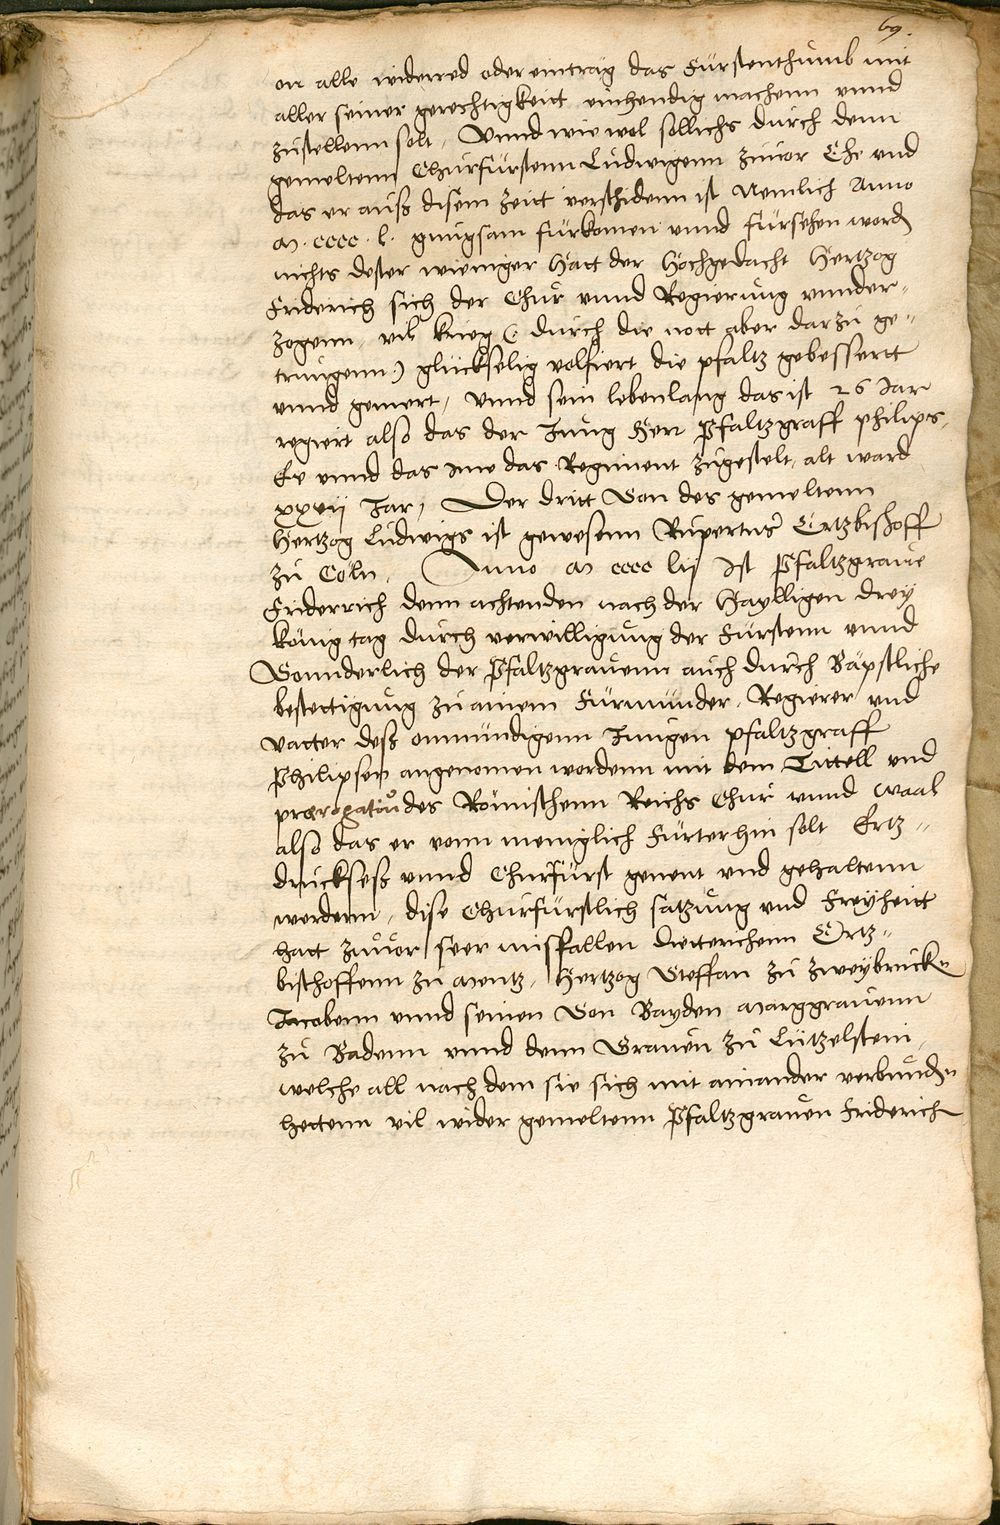 69.
on alle widerred oder eintrag das Fürstenthumb mit
aller seiner gerechtigkeitt einhendig machenn vnnd
zustellenn solt, Vnnd wie wol sollichs durch denn
gemeltenn Churfürstenn Ludwigenn zuuor Ehe vnd
das er auß disem zeitt verschidenn ist Nemlich Anno
M.cccc.l. gnugsam fürkomen vnnd fürsehen wordn
nichts dester wieniger Hatt der Hochgedacht Hertzog
Friderich sich der Chur vnnd Regierung vnnder-
zogenn, vil krieg (: durch die nott aber darzu ge-
trungenn:) glückselig volfiert die pfaltz gebessertt
vnnd gemert, Vnnd sein lebenlang das ist 26 Jar
regiert also das der Jung Herr Pfaltzgraff philips,
Ee vnnd das ime das Regiment zugestelt, alt ward
xxvij Jar, Der dritt Son des gemeltenn
Hertzog Ludwigs ist gewesenn Rupertus Ertzbischoff
zu Cöln, Anno M cccc lij Ist Pfaltzgraue
Friderrich denn achtenden nach der Haylligen drey
könig tag durch verwilligung der Fürstenn vnnd
Sonnderlich der Pfaltzgrauenn auch durch Bäpstliche
bestettigung zu ainem Fürmünder, Regierer vnd
vatter deß onmündigenn Jungen pfaltzgraff
Philipsen angenomen wordenn mit dem Tittell vnd
prærogatiou des Römischenn Reichs Chur vnnd waal
also das er vonn meniglich Fürterhin solt Ertz-
druckseß vnnd Churfürst genent vnd gehaltenn
werdenn, dise Churfürstlich satzung vnd Freyheitt
hatt zuuor seer missfallen Dietterichenn Ertz-
bischoffenn zu Mentz, Hertzog Steffan zu Zweybruckn
Jacobenn vnnd seinen Son Bayden Marggrauenn
zu Badenn vnnd denn Grauen zu Lützelstein,
welche all nach dem sie sich mit ainander verbundn
hettenn vil wider gemeltenn Pfaltzgrauen Friderich